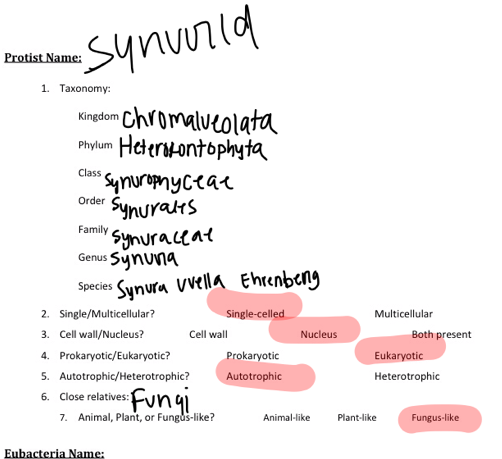 Synurid
Protist Name:
1. Taxonomy:
Kingdom Chromalveolata
Phylum Heterokontophyta
Class Synurophyceae
Order Synurales
Family Synuraceae
Genus Synura
Species Synura uvella Ehrenberg
2. Single/Multicellular? Single-celled Multicellular
3. Cell wall/Nucleus? Cell wall Nucleus Both present
4. Prokaryotic/Eukaryotic? Prokaryotic Eukaryotic
5. Autotrophic/Heterotrophic? Autotrophic Heterotrophic
6. Close relatives: Fungi
7. Animal, Plant, or Fungus-like? Animal-like Plant-like Fungus-like
Eubacteria Name: